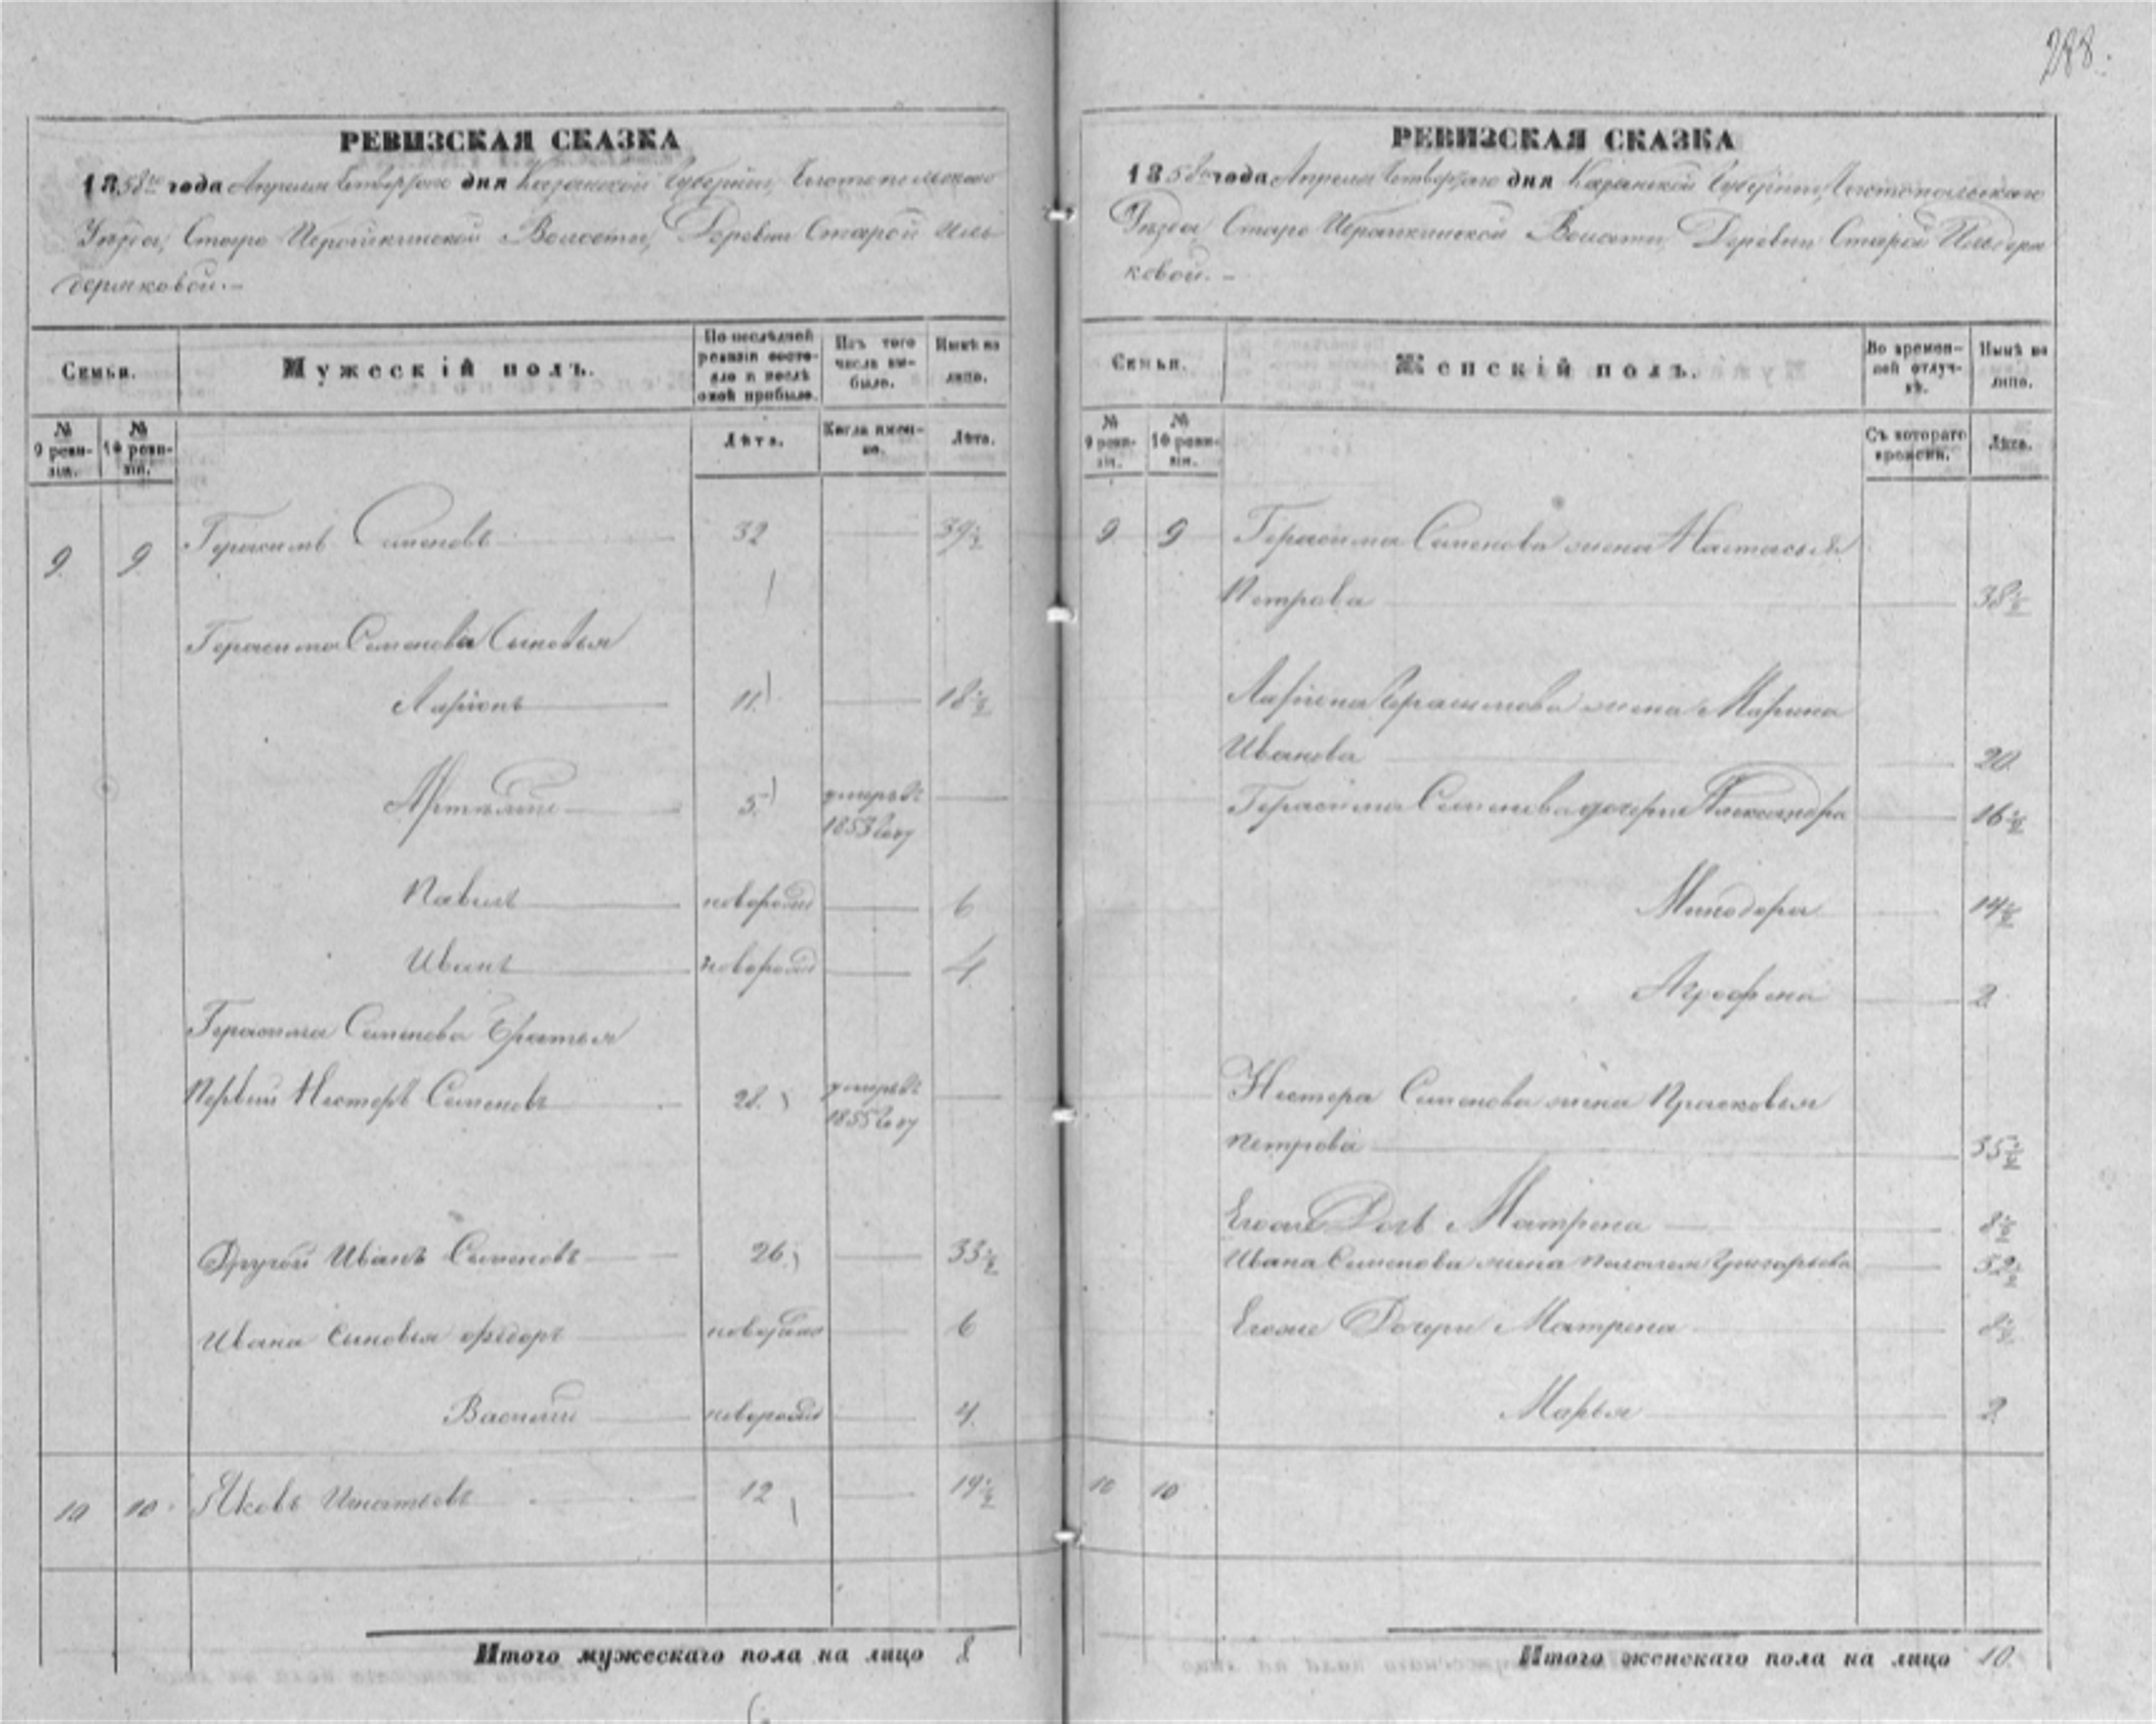 288.
РЕВИЗСКАЯ СКАЗКА
1858го года Апреля Четвертаго дня Казанской Губернии, Чистопольскаго
Уезда, Старо Иерашкинской Волости, Деревни Старой Иль
деряковой.-
Семьи.
Мужескій полъ.
По послѣдней ревизіи состояло и послѣ оной прибыло.
Изъ того числа выбыло.
Нынѣ на лицо.
№ 9 ревизіи.
№ 10 ревизіи.
Лѣта.
Когда именно.
Лѣта.
9. 9. Герасимъ Семеновъ 32 39½
Герасима Семенова Сыновья
Ларіонъ 11. 18½
Артемій 5. умеръ въ
1853 году
Павелъ новорожд 6
Иванъ новорожд 4.
Герасима Семенова братья
Первый Несторъ Семеновъ 28. умеръ въ
1855 году
Другой Иванъ Семеновъ 26. 33½
Ивана Сыновья Федоръ новорожд 6
Василій новорожд 4.
10 10. Яковъ Игнатьевъ 12 19½
Итого мужескаго пола на лицо 8
РЕВИЗСКАЯ СКАЗКА
1858го года Апреля Четвертаго дня Казанской Губернии, Чистопольскаго
Уезда Старо Иерашкинской Волости Деревни Старой Ильдеря
ковой. -
Семьи.
Женскій полъ.
Во временной отлучкѣ.
Нынѣ на лицо.
№ 9 ревизіи.
№ 10 ревизіи.
Съ котораго времени.
Лѣта.
9. 9 Герасима Семенова жена Настасья
Петрова 38½
Ларіона Герасимова жена Марина
Иванова 20.
Герасима Семенова дочери Александра 16½
Минодора 14½
Агрофена 2.
Нестера Семенова жена Прасковья
Петрова 35½
Егоже Дочь Матрена 8½
Ивана Семенова жена Пелагея Григорьева 32½
Егоже Дочери Матрена 8½
Марья 2
10 10
Итого женскаго пола на лицо 10.